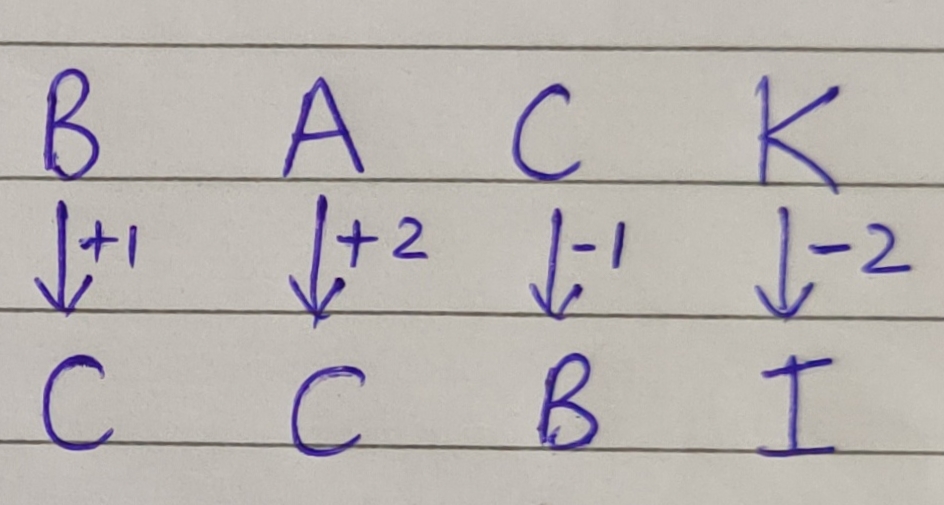 B A C K
↓+1 ↓+2 ↓-1 ↓-2
C C B I